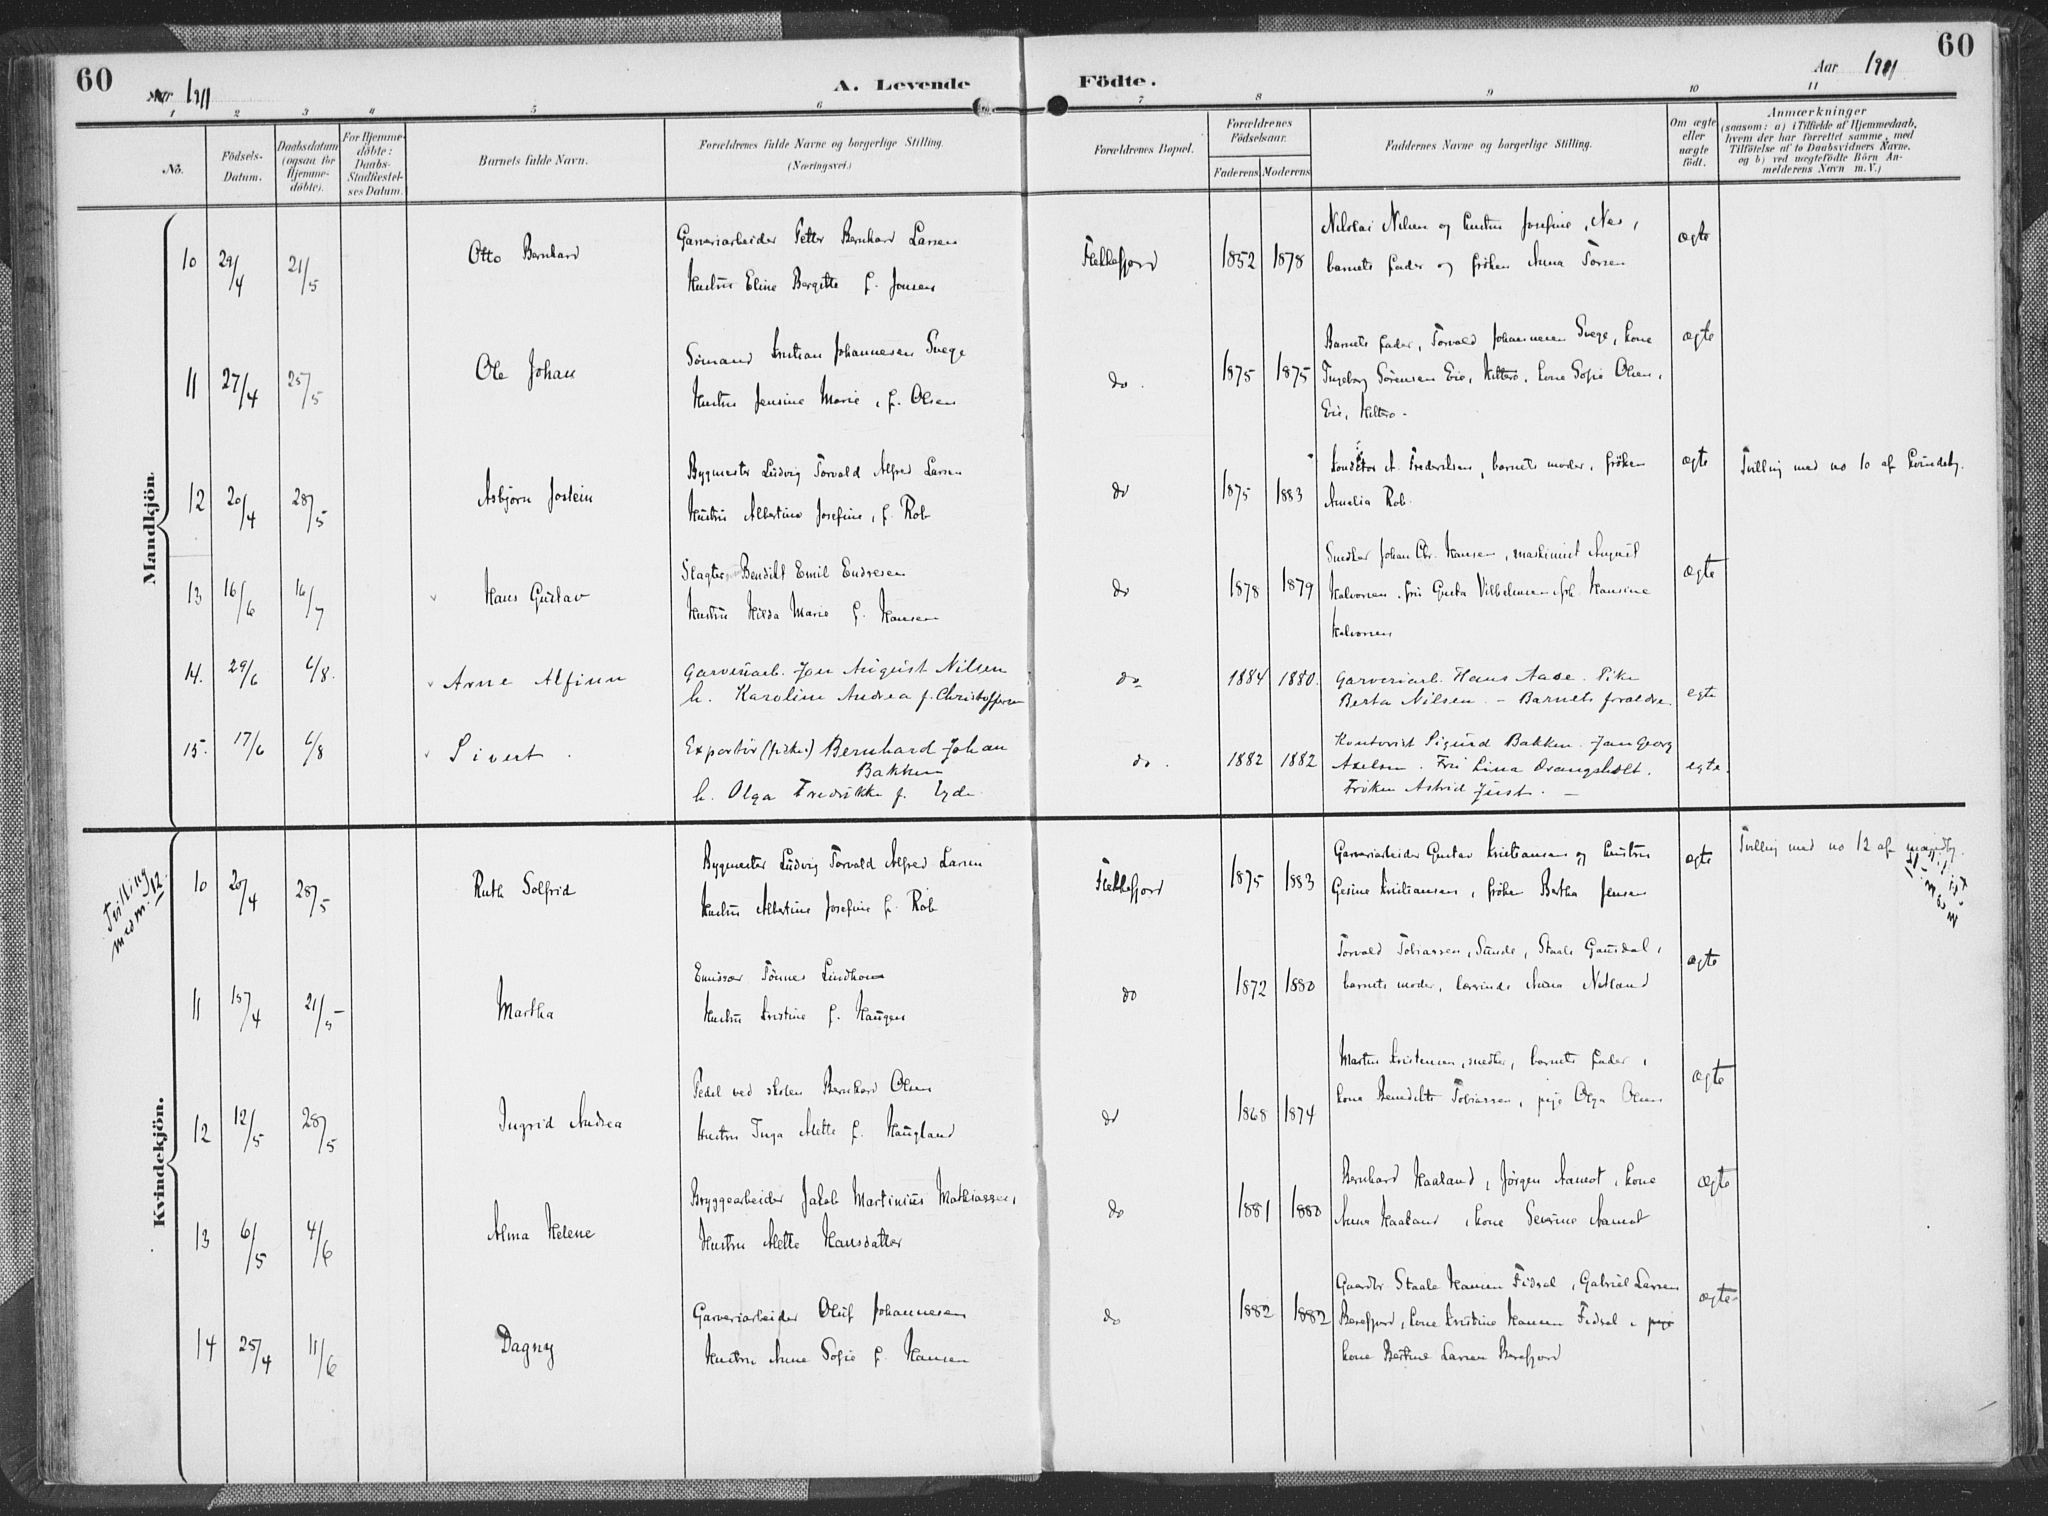 60
Aar 1911
A. Levende
Födte.
Aar 1911
60
1 2 3 4 5 6 7 8 9 10 11
No.
Födsels-Datum.
Daabsdatum (ogsaa for Hjemme-döbte).
For Hjemme-döbte: Daabs-Stadfæstel-ses Datum.
Barnets fulde Navn.
Forældrenes fulde Navne og borgerlige Stilling. (Næringsvei.)
Forældrenes Bopæl.
Forældrenes Födselsaar.
Faderens Moderens
Faddernes Navne og borgerlige Stilling.
Om ægte eller uægte födt.
Anmærkninger
(saasom: a) i Tilfælde af Hjemmedaab, hvem der har forrettet samme, med Tilföielse af to Daabsvidners Navne, og b) ved uægtefödte Börn An-melderens Navn m.V.)
Mandkjön.
10 29/4 21/5 Otto Bernhard Garveriarbeider Petter Bernhard Larsen Flekkefjord 1852 1878 Nikolai Nilsen og hustru Josefine, Nes, ægte
Hustru Eline Bergitte f. Jonsen barnets fader og frøken Anna Torsen
11 27/4 25/5 Ole Johan Sømand Kristian Johannesen Svege do. 1875 1875 Barnets fader, Torvald Johannesen Svege, kone ægte
Hustru Jensine Marie, f. Olsen Ingeborg Sørensen Eie, Hitterø, kone Sofie Olsen,
Eie, Hitterø.
12 20/4 28/5 Asbjørn Jostein Bygmester Ludvig Torvald Alfred Larsen do 1875 1883 Konditor A. Frederiksen, barnets moder, frøken ægte Tvilling med no 10 af kvindekj.
Hustru Albertine Josefine, f. Rob Amalia Rob.
13 16/6 16/7 Hans Gustav Slagter Bendikt Emil Endresen do 1878 1879 Snedker Johan Chr. Hansen, maskinist August ægte
Hustru Hilda Marie f. Hansen Halvorsen, fru Gusta Vilhelmsen, frk. Hansine
Halvorsen
14. 29/6 6/8. Arne Alfinn Garveriarb. Jan August Nilsen do 1884 1880. Garveriarb. Hans Aase. Pike egte
h. Karoline Andrea f. Christoffersen Berta Nilsen. – Barnets forældre.
15. 17/6 6/8 Sivert. Exportør (fiske) Bernhard Johan do. 1882 1882 Kontorist Sigurd Bakken. Jan Georg egte.
Bakken Axelsen. Fru Lina Drangsholt.
h. Olga Fredrikke f. Eyde. Frøken Astrid Just. –
Kvindekjön.
Tvilling med m. 12.
10 20/4 28/5 Ruth Solfrid Bygmester Ludvig Torvald Alfred Larsen Flekkefjord 1875 1883 Garveriarbeider Gustav Kristiansen og hustru ægte Tvilling med no 12 af mandkj.
Hustru Albertine Josefine f. Rob Gesine Kristiansen, frøken Bertha Jensen
11 15/4 21/5 Martha Emissær Tønnes Lindhom do 1872 1880 Torvald Tobiassen, Sunde, Staale Gausdal, ægte
Hustru Kristine f. Haugen barnets moder, lærerinde Anna Netland
12 12/5 28/5 Ingrid Andrea Pedel ved skolen Bernhard Olsen do 1868 1874 Martin Kristensen, snedker, barnets fader, ægte
Hustru Inga Alette f. Haugland kona Benedikte Tobiassen, pige Olga Olsen
13 6/5 4/6 Alma Helene Bryggearbeider Jakob Martinius Mathiassen, do 1881 1880 Bernhard Haaland, Jørgen Aamot, kone ægte
Hustru Alette Hansdatter Anna Haaland, kone Severine Aamot
14 25/4 11/6 Dagny Garveriarbeider Oluf Johannesen do 1882 1882 Gaardbr Staale Hansen Fidsel, Gabriel Larsen ægte
Hustru Anne Sofie f. Hansen Berefjord, kone Kristine Hansen Fidsel, pige
kone Bertine Larsen Berefjord